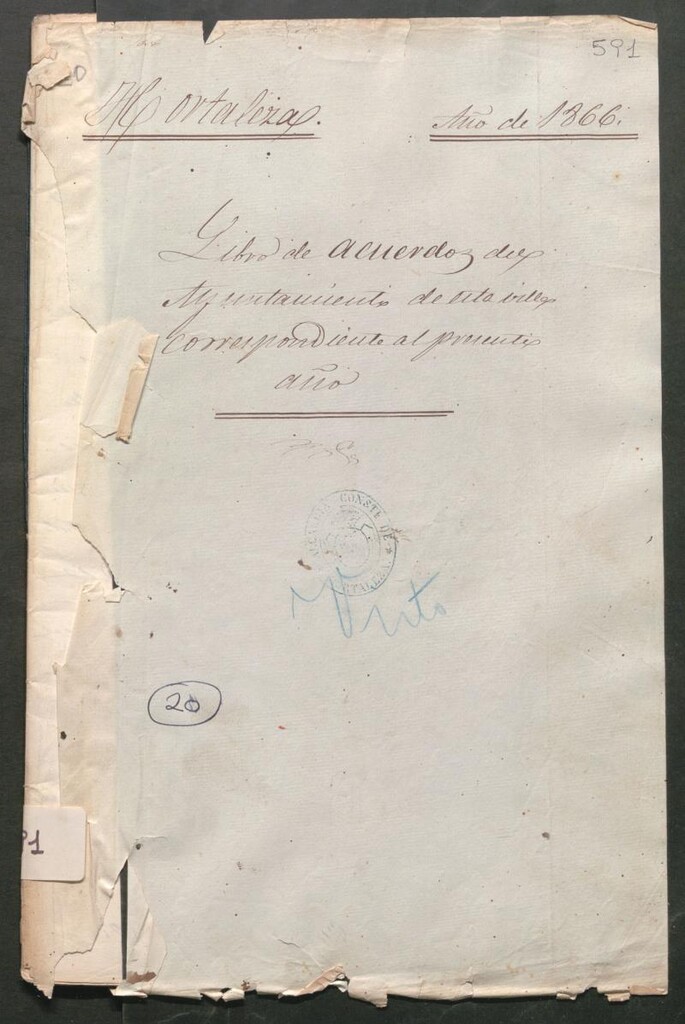 591
Hortaleza.
Año de 1866.
Libro de acuerdos del
Ayuntamiento de esta villa
correspondiente al presente
año
CONSTL DE
Visto
20
91